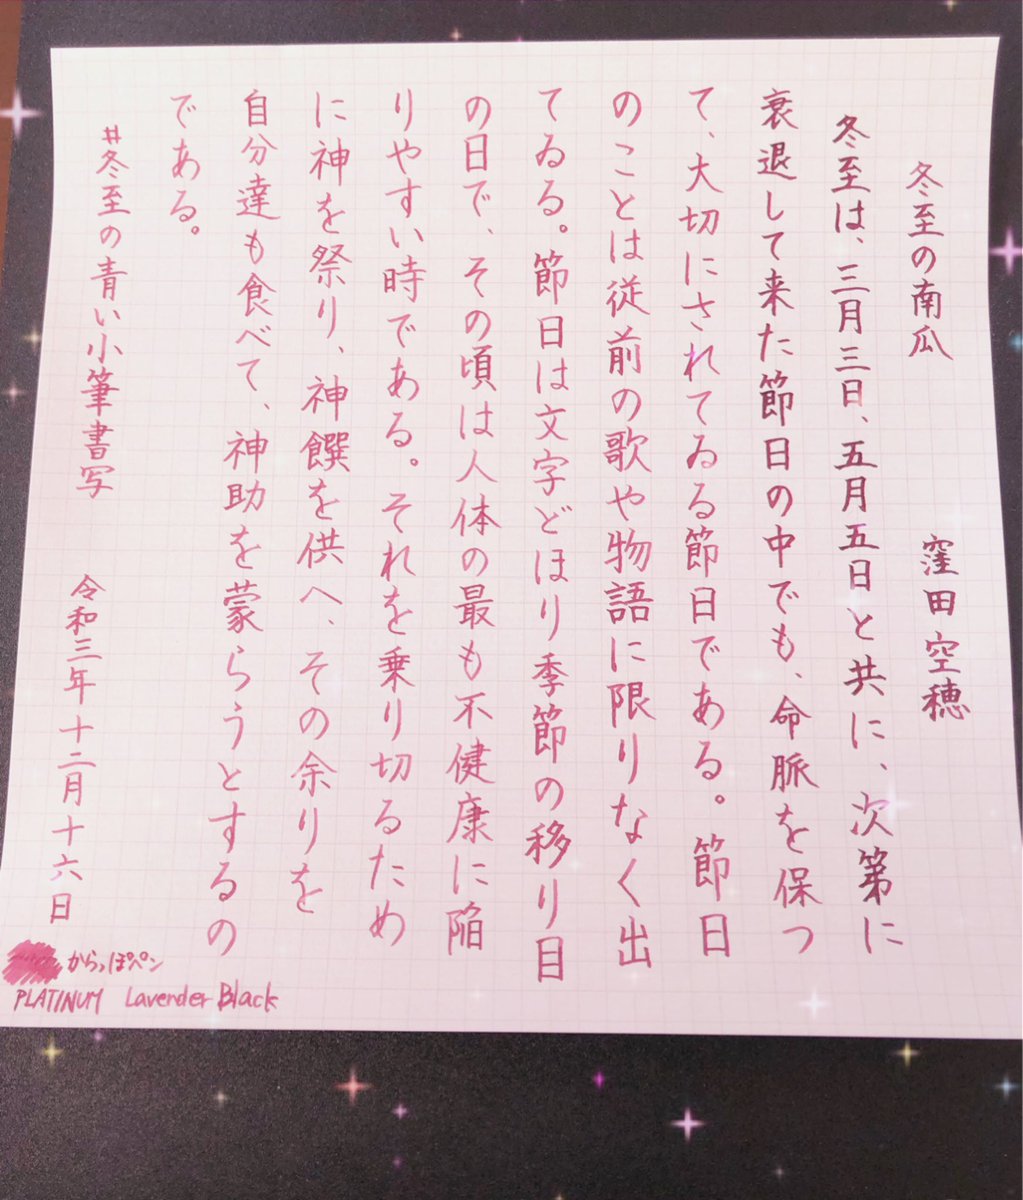 冬至の南瓜　窪田空穂
冬至は、三月三日、五月五日と共に、次第に
衰退して来た節日の中でも、命脈を保つ
て、大切にされてゐる節日である。節日
のことは従前の歌や物語に限りなく出
てゐる。節日は文字どほり季節の移り目
の日で、その頃は人体の最も不健康に陥
りやすい時である。それを乗り切るため
に神を祭り、神饌を供へ、その余りを
自分達も食べて、神助を蒙らうとするの
である。
#冬至の青い小筆書写　令和三年十二月十六日
からっぽペン
PLATINUM Lavender Black